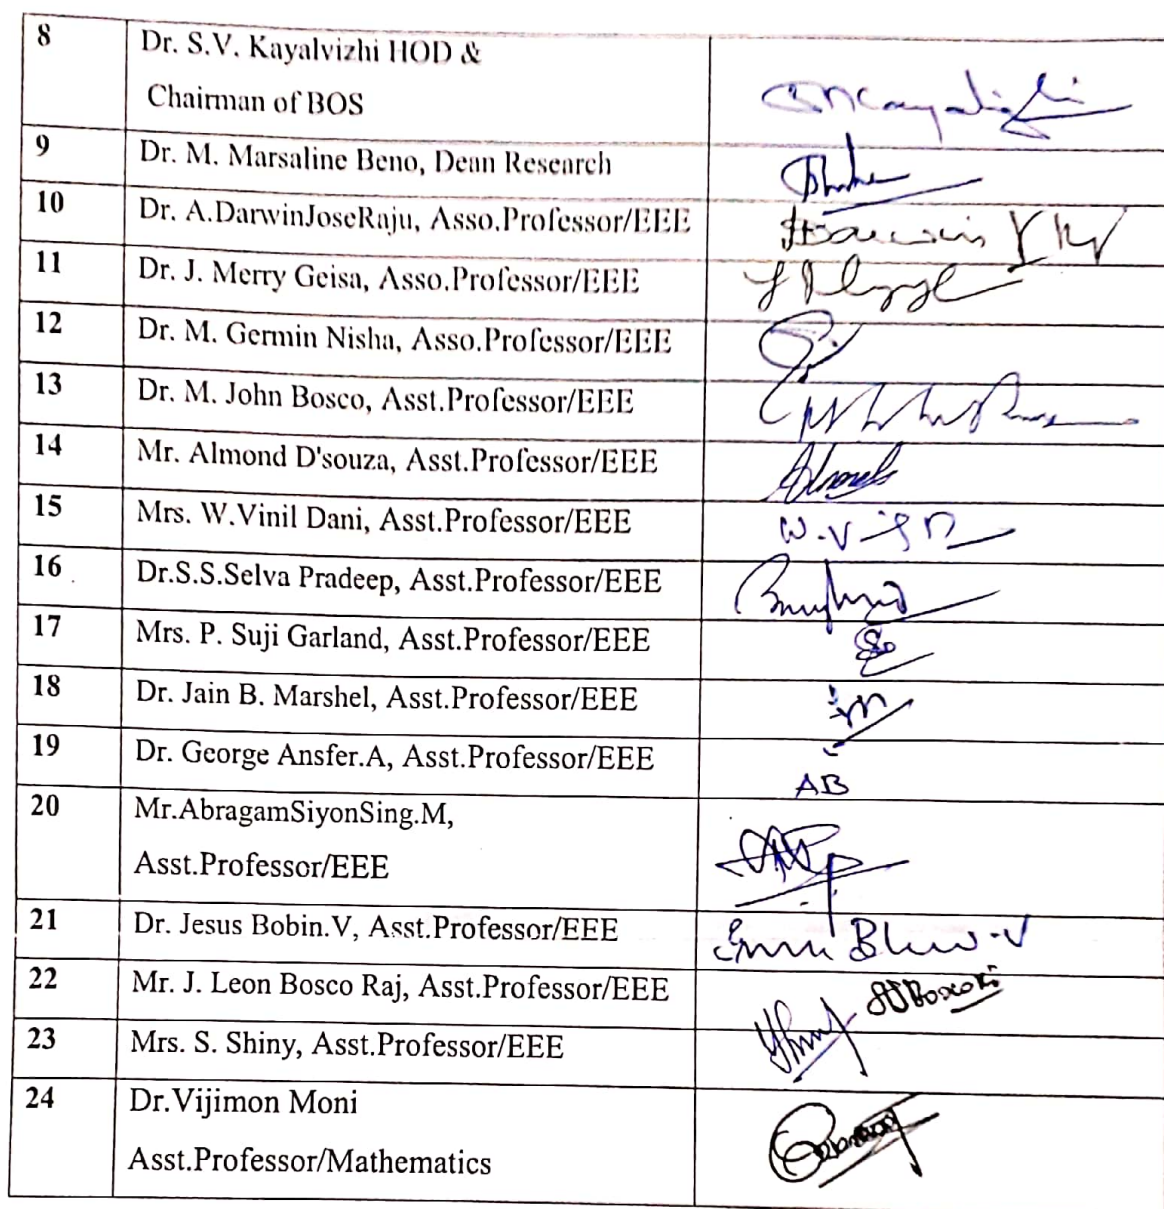 8 Dr. S.V. Kayalvizhi HOD &
Chairman of BOS
9 Dr. M. Marsaline Beno, Dean Research
10 Dr. A.DarwinJoseRaju, Asso.Professor/EEE
11 Dr. J. Merry Geisa, Asso.Professor/EEE
12 Dr. M. Germin Nisha, Asso.Professor/EEE
13 Dr. M. John Bosco, Asst.Professor/EEE
14 Mr. Almond D'souza, Asst.Professor/EEE
15 Mrs. W.Vinil Dani, Asst.Professor/EEE
16 Dr.S.S.Selva Pradeep, Asst.Professor/EEE
17 Mrs. P. Suji Garland, Asst.Professor/EEE
18 Dr. Jain B. Marshel, Asst.Professor/EEE
19 Dr. George Ansfer.A, Asst.Professor/EEE
AB
20 Mr.AbragamSiyonSing.M,
Asst.Professor/EEE
21 Dr. Jesus Bobin.V, Asst.Professor/EEE
22 Mr. J. Leon Bosco Raj, Asst.Professor/EEE
23 Mrs. S. Shiny, Asst.Professor/EEE
24 Dr.Vijimon Moni
Asst.Professor/Mathematics